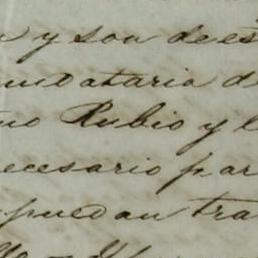 y son de es
mandataria d
Rubio y l
necesario par
puedan tra